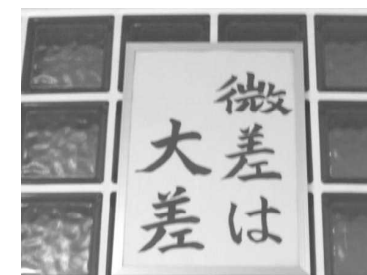 微差は
大差